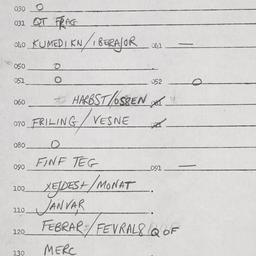 030 O
031 QT FRAG
040 KUMEDIKN/IBERAJOR 041 —
050 O
051 O 052 O
060 HARBST/OSSEN 061
070 FRILING/VESNE
080 O
090 FINF TEG 091 —
100 XEJDESH/MONAT
110 JANVAR
120 FEBRAR/FEVRAL8 Q OF
130 MERC